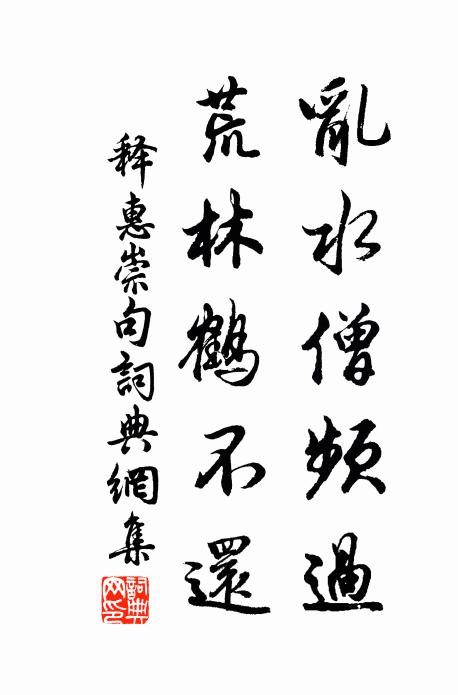 亂水僧頻過
荒林鶴不還
释惠崇句詞典網集
詞典网印